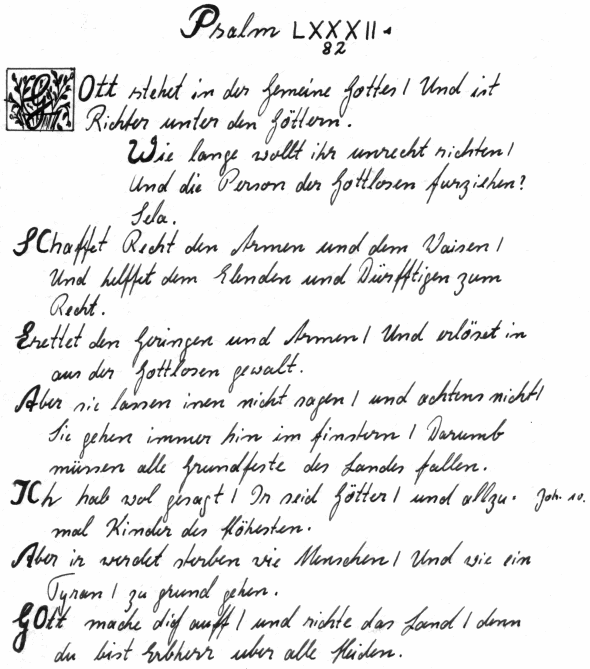 Psalm LXXXII.
82
GOtt stehet in der Gemeine Gottes / Und ist
Richter unter den Göttern.
Wie lange wollt ihr unrecht richten /
Und die Person der Gottlosen furziehen?
Sela.
SChaffet Recht den Armen und dem Vaisen /
Und helffet dem Elenden und Dürfftigen zum
Recht.
Erettet den Geringen und Armen / Und erlöset in
aus der Gottlosen gewalt.
Aber sie lassen inen nicht sagen / und achtens nicht /
Sie gehen immer hin im finstern / Darumb
müssen alle Grundfeste des Landes fallen.
ICh hab wol gesagt / Ir seid Götter / und allzu. Joh. 10.
mal Kinder des Höhesten.
Aber ir werdet sterben wie Menschen / Und wie ein
Tyran / zu grund gehen.
GOtt mache dich auff / und richte das Land / denn
du bist Erbherr uber alle Heiden.